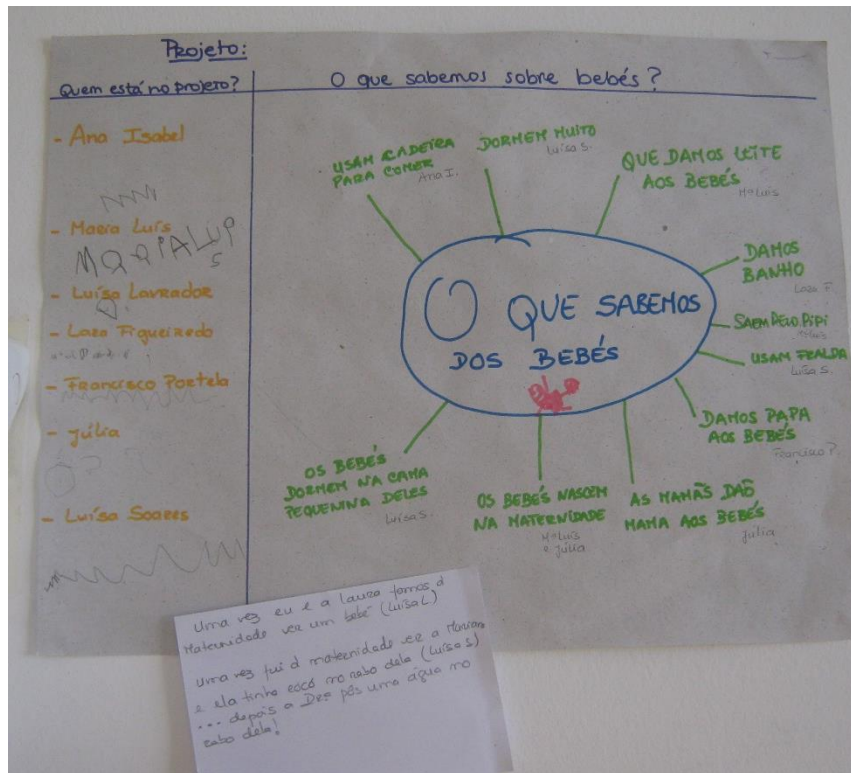 Projeto:
Quem está no projeto?
- Ana Isabel
- Maria Luís
MARIALUP
S
- Luísa Lavrador
- Lara Figueiredo
- Francisco Portela
- Júlia
- Luísa Soares
O que sabemos sobre bebés?
USAM CADEIRA
PARA COMER
Ana I.
DORMEM MUITO
Luísa S.
QUE DAMOS LEITE
AOS BEBÉS
Mª Luís
DAMOS
BANHO
Lara F.
SAEM PELO PIPI
Mª Luís
USAM FRALDA
Luísa S.
DAMOS PAPA
AOS BEBÉS
Francisco P.
AS MAMÃS DAÕ
MAMA AOS BEBÉS
Júlia
OS BEBÉS NASCEM
NA MATERNIDADE
Mª Luís
e Júlia
OS BEBÉS
DORMEM NA CAMA
PEQUENINA DELES
Luísa S.
O QUE SABEMOS
DOS BEBÉS
Uma vez eu e a Laura fomos à
Maternidade ver um bebé (Luísa L)
Uma vez fui à maternidade ver a Mariana
e ela tinha cocó no rabo dela (Luísa S)
... depois a Drª pôs uma água no
rabo dela!